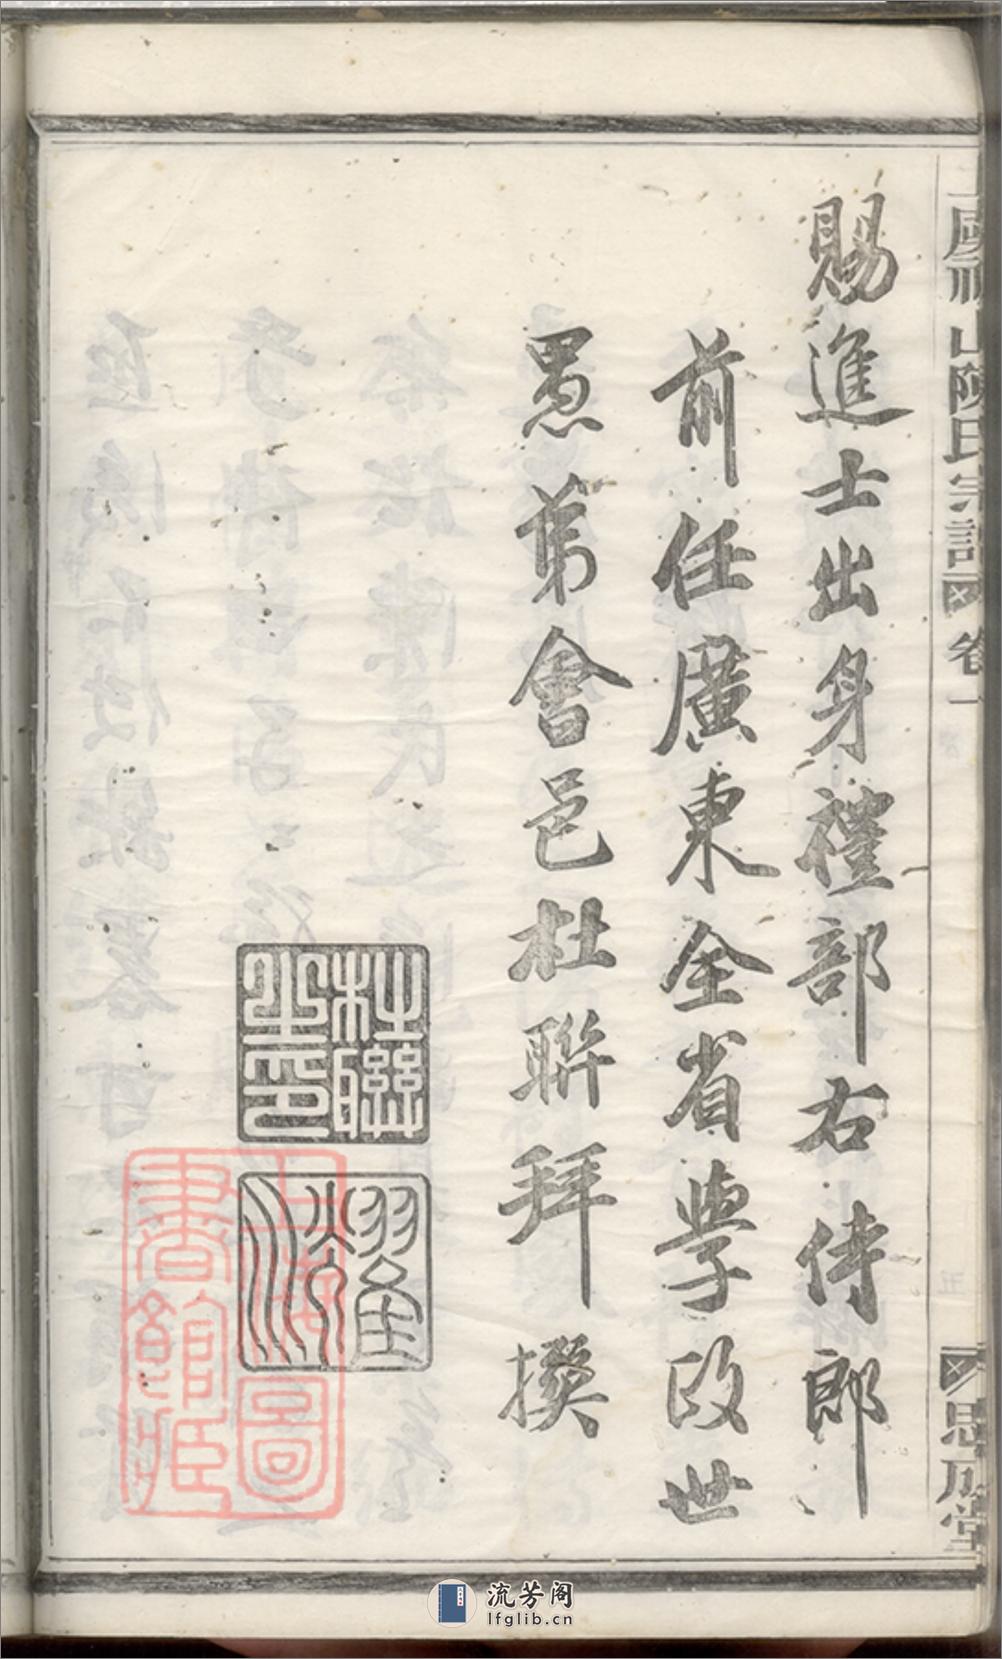 山陳氏宗譜 卷一
思成堂
賜進士出身禮部右侍郎
前任廣東全省學政世
愚弟會邑杜聯拜撰
杜聯之印
蓮衢
上海圖書館藏
流芳阁
lfglib.cn